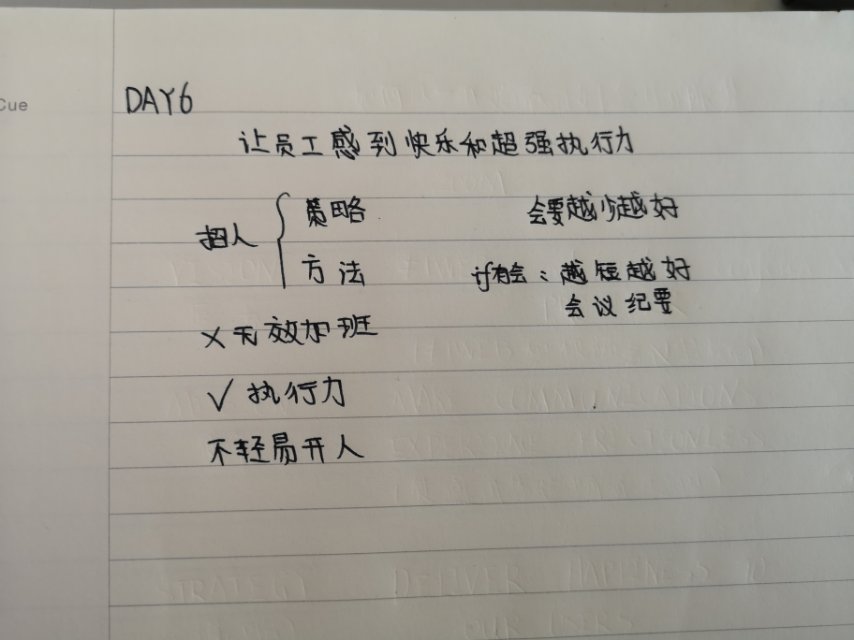 Cue
DAY6
让员工感到快乐和超强执行力
招人
策略
方法
会要越少越好
if有会：越短越好
会议纪要
×无效加班
√执行力
不轻易开人